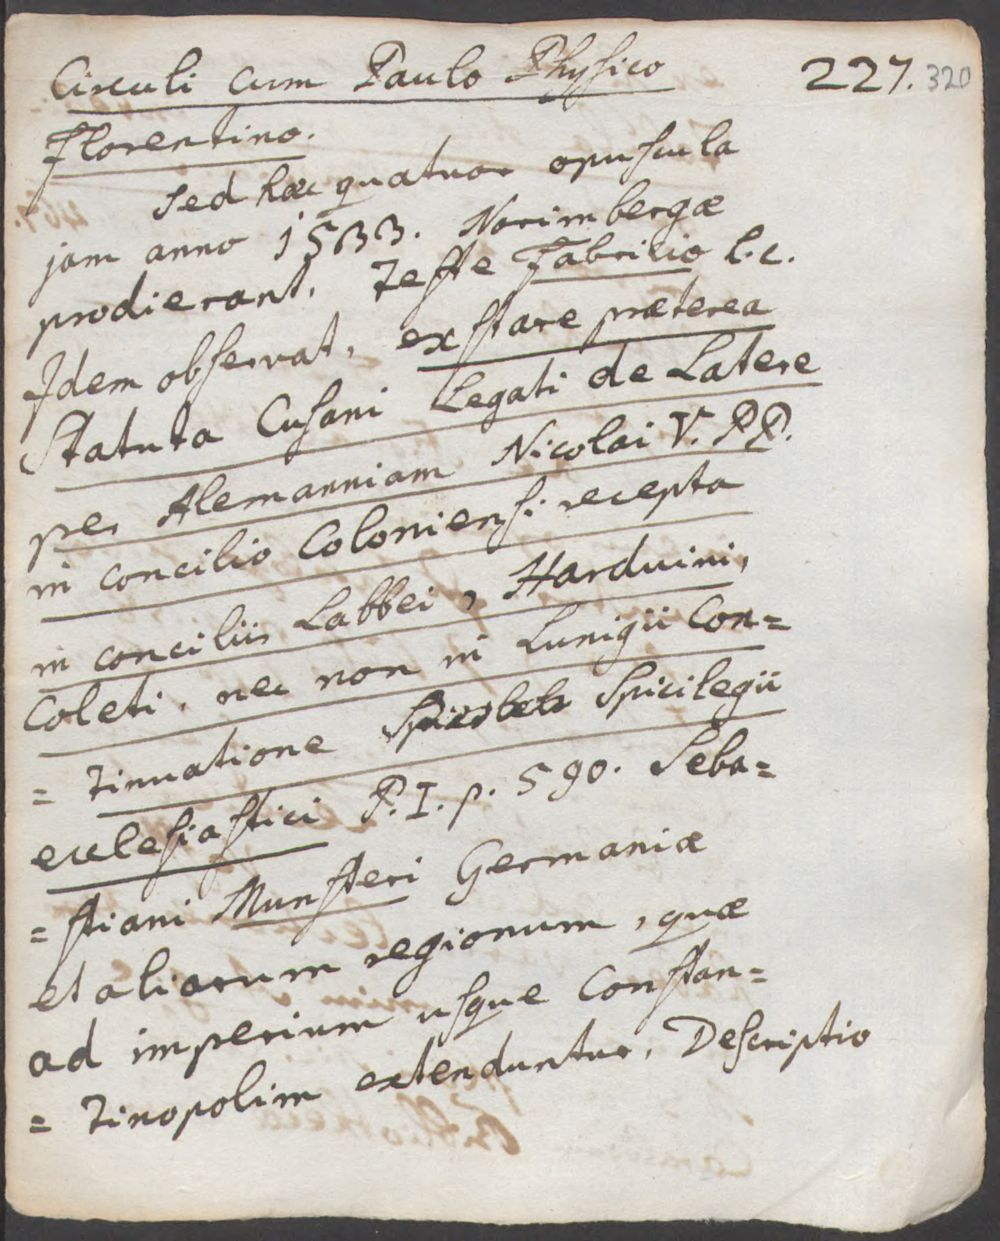 Circuli cum Paulo Physico 227. 320
Florentino.
Sed hæc quatuor opuscula
jam anno 1533. Norimbergæ
prodierant, teste Fabricio l.c.
Idem observat, exstare præterea
Statuta Cusani Legati de Latere
per Alemanniam Nicolai V. PP.
in concilio Coloniensi recepta
in conciliis Labbei, Harduini,
Coleti, nec non in Lunigii Con=
= tinuatione Spicilegii
ecclesiastici P.I. p. 590. Seba=
= stiani Munsteri Germaniæ
et aliarum regionum, quæ
ad imperium usque Constan=
= tinopolim extenduntur, Descriptio